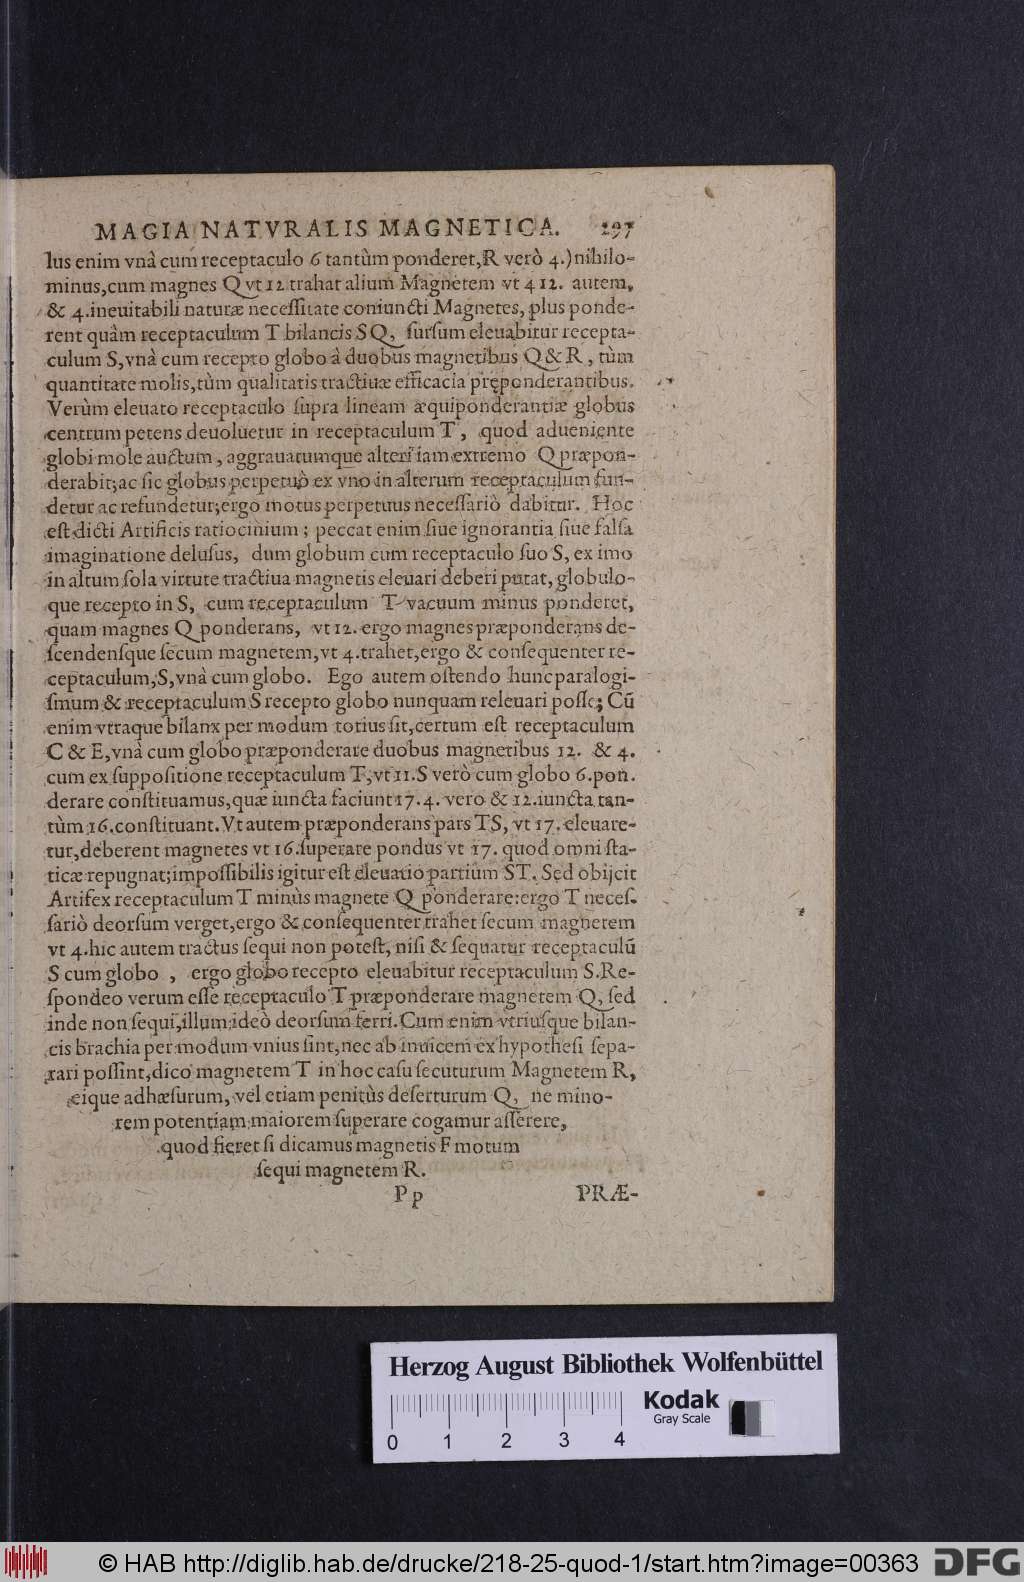 MAGIA NATVRALIS MAGNETICA. 297
lus enim vnâ cum receptaculo 6 tantùm ponderet, R verò 4.) nihilo-
minus, cum magnes Q vt 12 trahat alium Magnetem vt 4 12. autem,
& 4. ineuitabili naturæ necessitate coniuncti Magnetes, plus ponde-
rent quàm receptaculum T bilancis S Q, sursum eleuabitur recepta-
culum S, vnà cum recepto globo à duobus magnetibus Q & R, tùm
quantitate molis, tùm qualitatis tractiuæ efficacia pręponderantibus.
Verùm eleuato receptaculo supra lineam æquiponderantiæ globus
centrum petens deuoluetur in receptaculum T, quod adueniente
globi mole auctum, aggrauatumque alteri iam extremo Q præpon-
derabit; ac sic globus perpetuò ex vno in alterum receptaculum fun-
detur ac refundetur; ergo motus perpetuus necessariò dabitur. Hoc
est dicti Artificis ratiocinium; peccat enim siue ignorantia siue falsa
imaginatione delusus, dum globum cum receptaculo suo S, ex imo
in altum sola virtute tractiua magnetis eleuari deberi putat, globulo-
que recepto in S, cum receptaculum T vacuum minus ponderet,
quam magnes Q ponderans, vt 12. ergo magnes præponderans de-
scendensque secum magnetem, vt 4. trahet, ergo & consequenter re-
ceptaculum, S, vnà cum globo. Ego autem ostendo hunc paralogi-
smum & receptaculum S recepto globo nunquam releuari posse; Cũ
enim vtraque bilanx per modum totius sit, certum est receptaculum
C & E, vnà cum globo præponderare duobus magnetibus 12. & 4.
cum ex suppositione receptaculum T, vt 11. S verò cum globo 6. pon.
derare constituamus, quæ iuncta faciunt 17. 4. vero & 12. iuncta tan-
tùm 16. constituant. Vt autem præponderans pars TS, vt 17. eleuare-
tur, deberent magnetes vt 16. superare pondus vt 17. quod omni sta-
ticæ repugnat; impossibilis igitur est eleuatio partium ST. Sed obijcit
Artifex receptaculum T minùs magnete Q ponderare: ergo T neces-
sariò deorsum verget, ergo & consequenter trahet secum magnetem
vt 4. hic autem tractus sequi non potest, nisi & sequatur receptaculũ
S cum globo, ergo globo recepto eleuabitur receptaculum S. Re-
spondeo verum esse receptaculo T præponderare magnetem Q, sed
inde non sequi, illum ideò deorsum ferri. Cum enim vtriusque bilan-
cis brachia per modum vnius sint, nec ab inuicem ex hypothesi sepa-
rari possint, dico magnetem T in hoc casu secuturum Magnetem R,
eique adhæsurum, vel etiam penitùs deserturum Q, ne mino-
rem potentiam maiorem superare cogamur asserere,
quod fieret si dicamus magnetis F motum
sequi magnetem R.
P p PRÆ-
Herzog August Bibliothek Wolfenbüttel
Kodak
Gray Scale
0 1 2 3 4
© HAB http://diglib.hab.de/drucke/218-25-quod-1/start.htm?image=00363 DFG